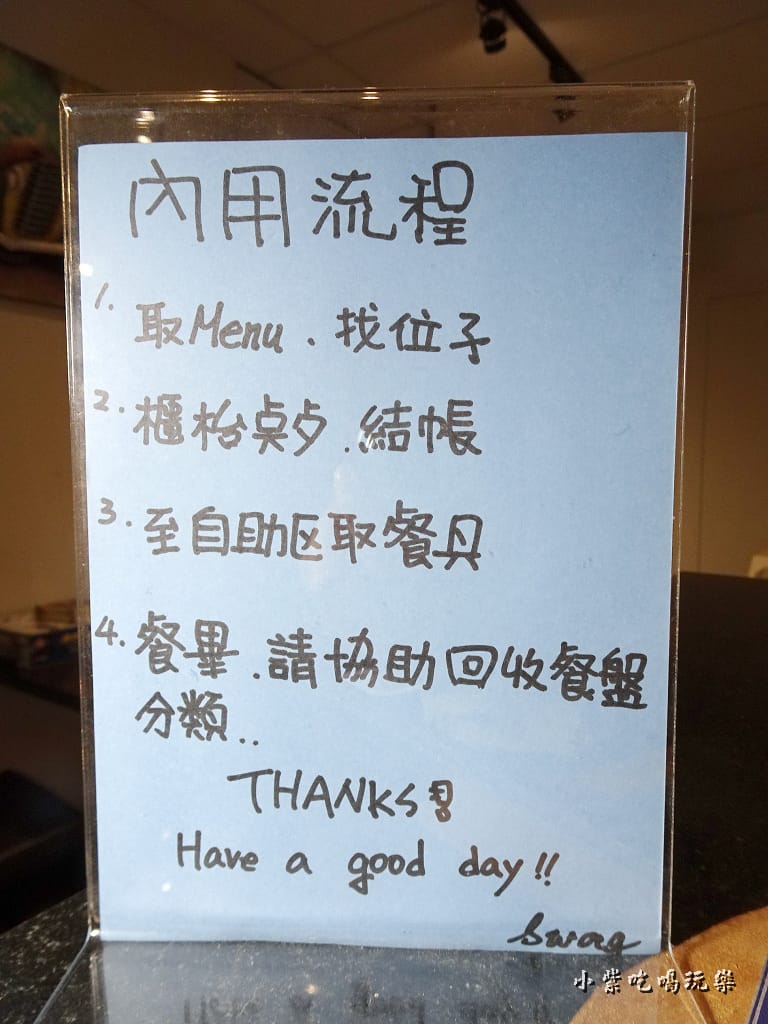 內用流程
1. 取Menu. 找位子
2. 櫃枱桌夕.結帳
3. 至自助区取餐具
4. 餐畢.請協助回收餐盤
分類..
THANKS!
Have a good day!!
Swag
小紫吃喝玩樂